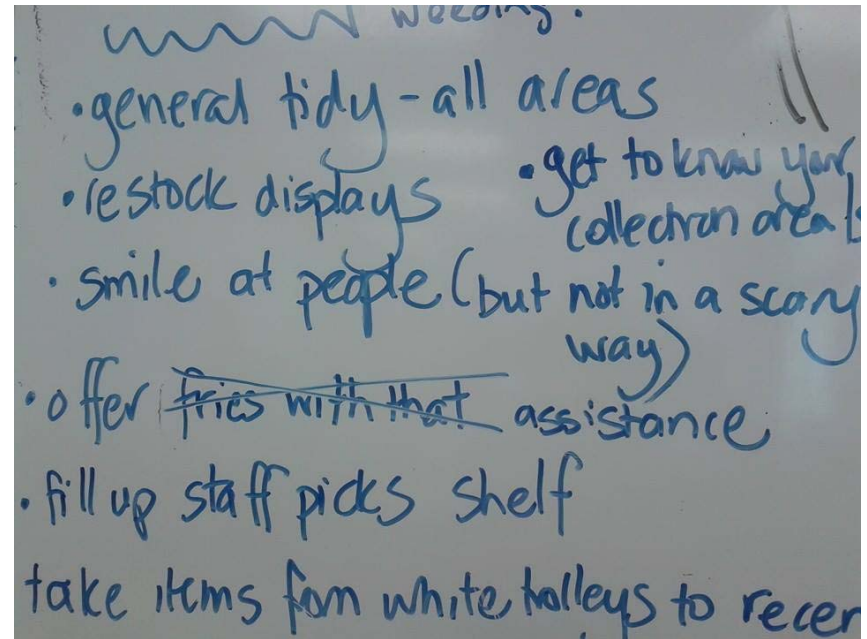 weeding.
• general tidy - all areas
• restock displays
• get to know your
collection area
• smile at people (but not in a scary
way)
• offer fries with that assistance
• fill up staff picks shelf
take items from white trolleys to recen